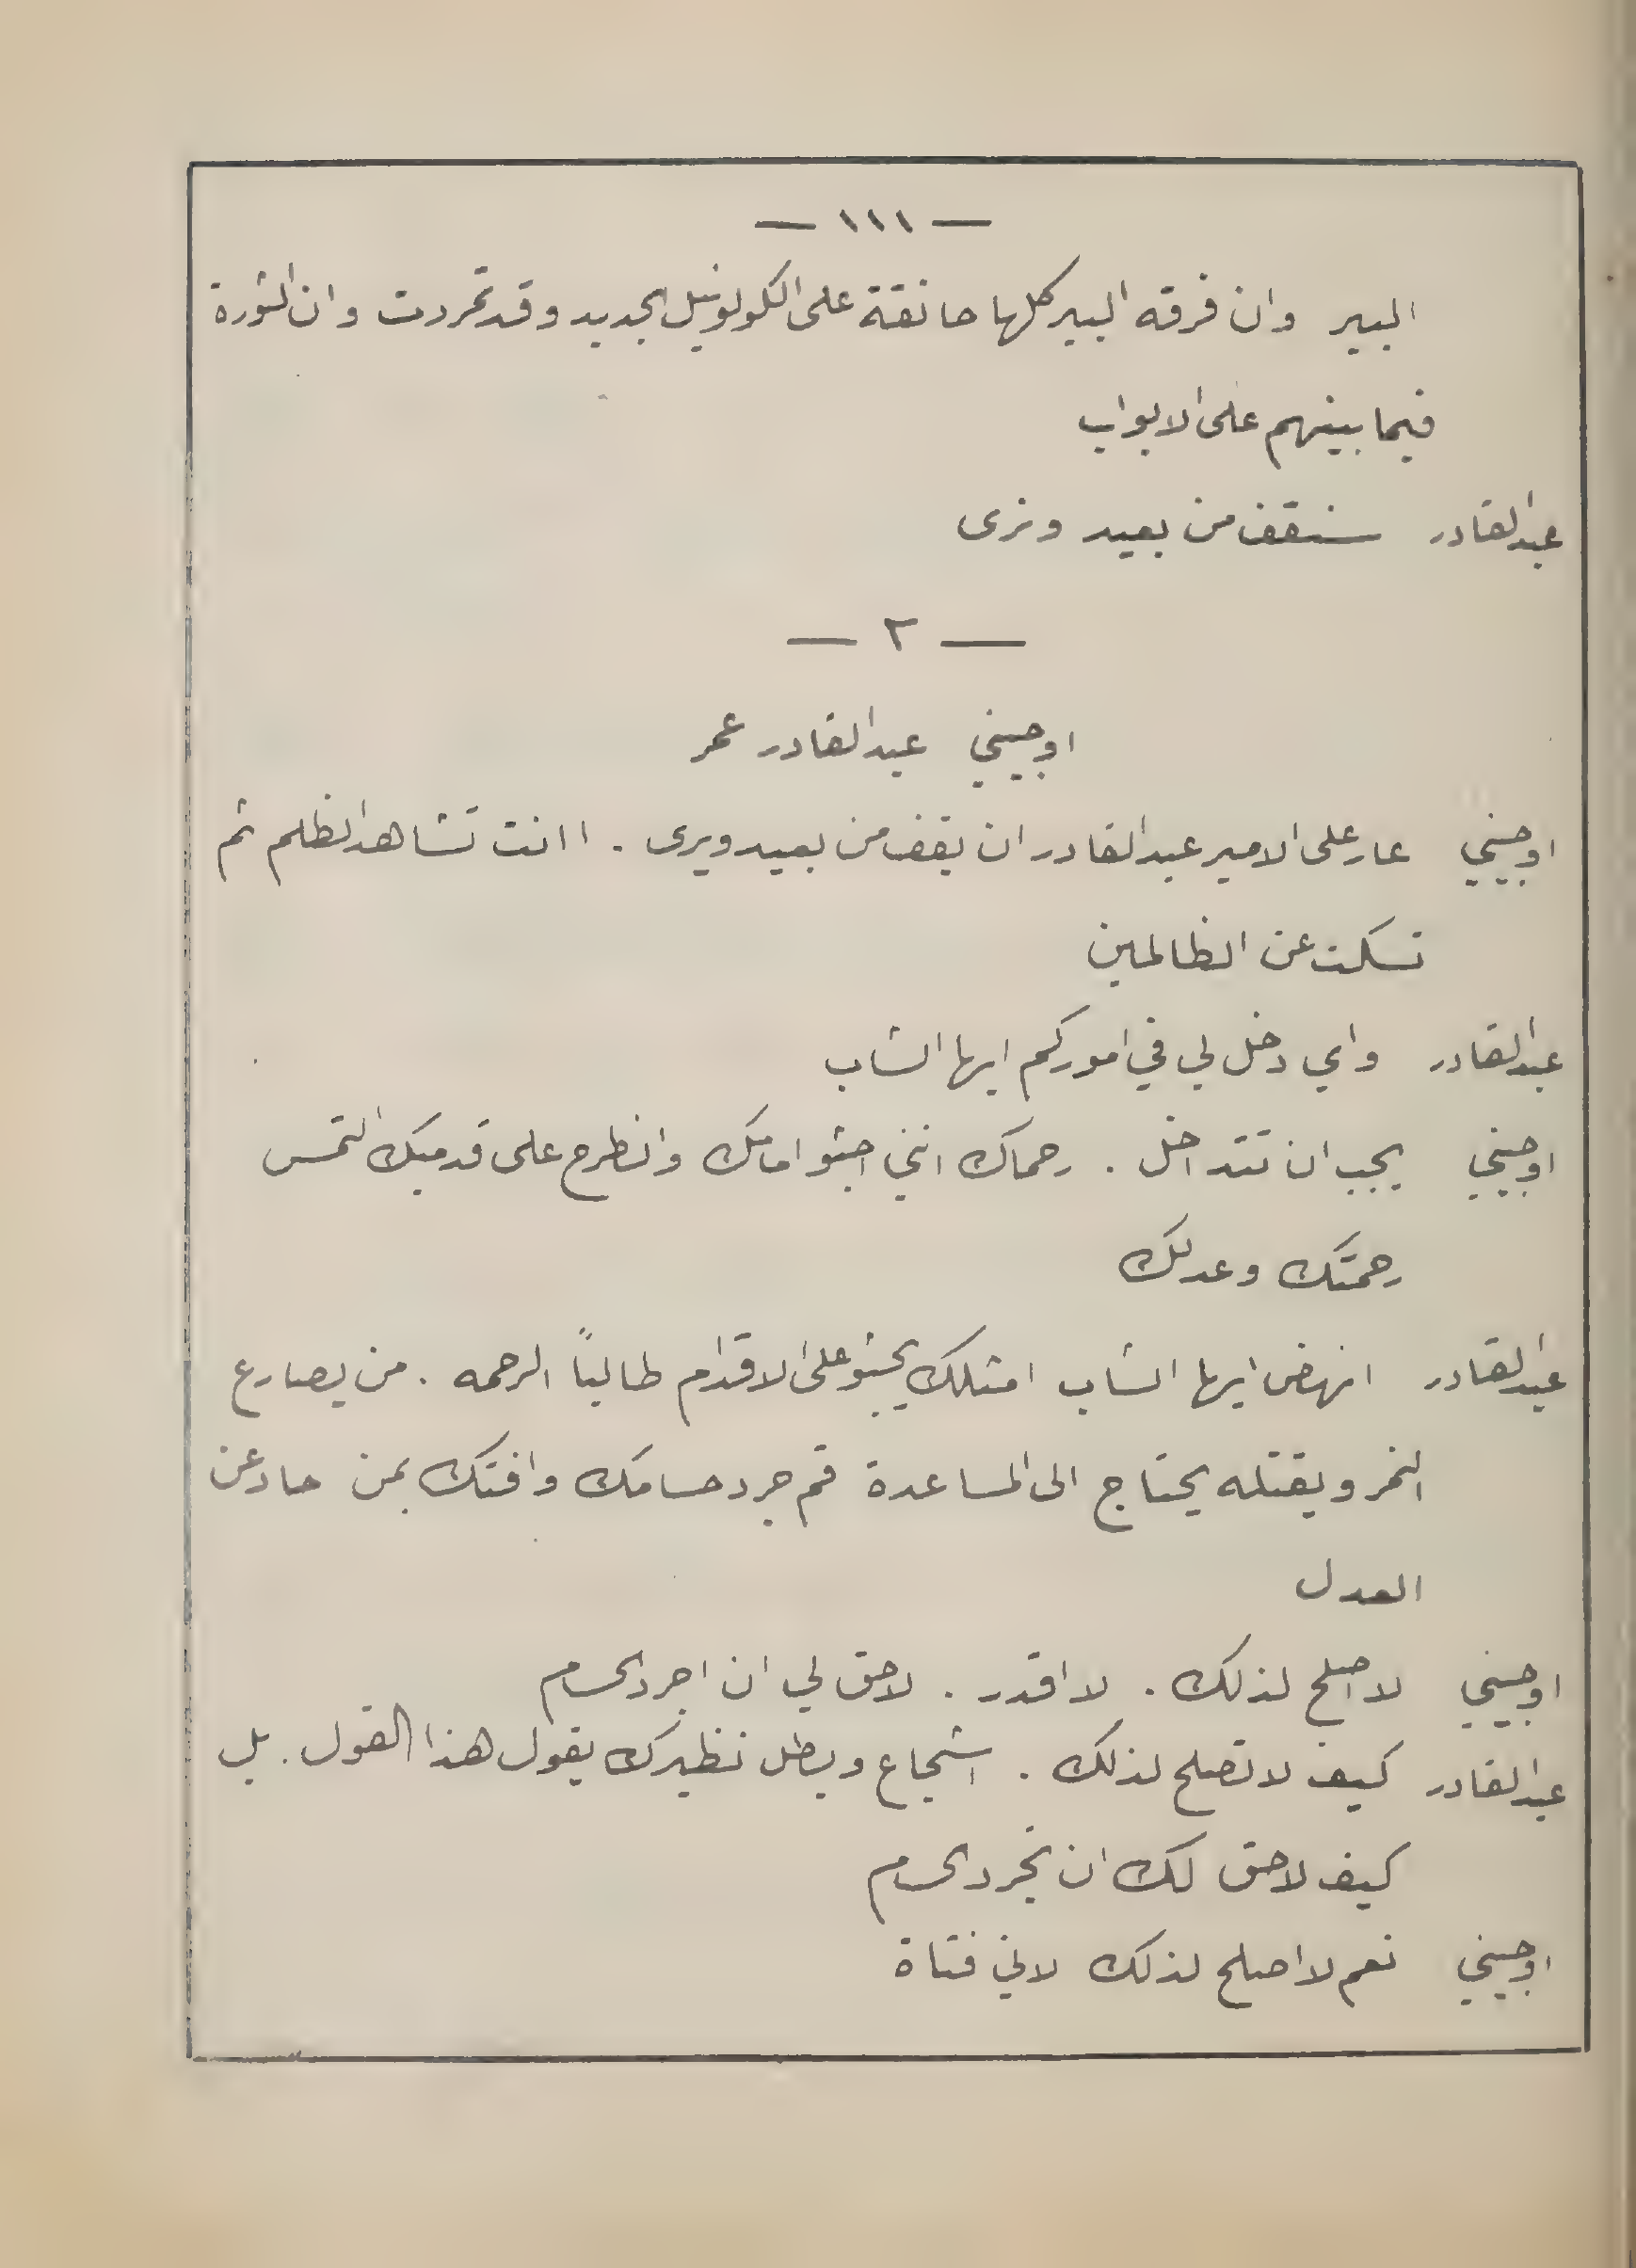 — ١١١ —
البير وان فرقه البير كلها حانقة على الكولونيل الجديد وقد تمردت وان الثورة
فيما بينهم على الابواب
عبد القادر سنقف من بعيد ونرى
— ٢ —
اوجيني عبد القادر عمر
اوجيني عار على الامير عبد القادر ان يقف من بعيد ويرى . اانت تشاهد الظلم ثم
تسكت عن الظالمين
عبد القادر واي دخل لي في اموركم ايها الشاب
اوجيني يجب ان تتداخل . رحماك انني اجثو امامك وانطرح على قدميك التمس
رحمتك وعدلك
عبد القادر انهض ايها الشاب امثلك يجثو على الاقدام طالباً الرحمه . من يصارع
النمر ويقتله يحتاج الى المساعدة قم جرد حسامك وافتك بمن حاد عن
العدل
اوجيني لا اصلح لذلك . لا اقدر . لا حق لي ان اجرد الحسام
عبد القادر كيف لا تصلح لذلك . اشجاع وبطل نظيرك يقول هذا القول . بل
كيف لا حق لك ان تجرد الحسام
اوجيني نعم لا اصلح لذلك لاني فتاة